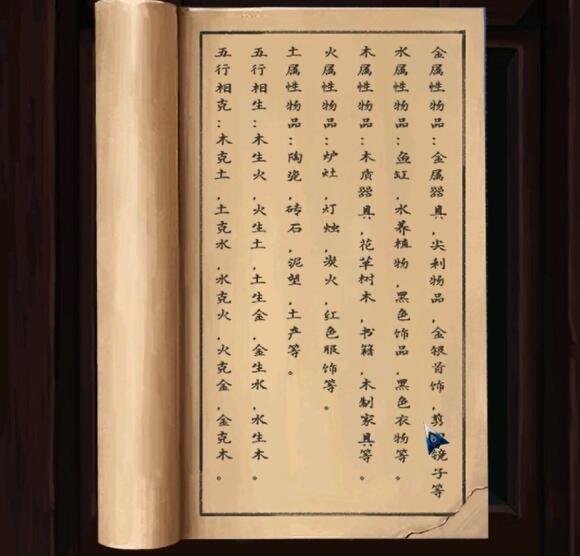 金属性物品：金属器具，尖利物品，金银首饰，剪镜子等
水属性物品：鱼缸，水养植物，黑色饰品，黑色衣物等。
木属性物品：木质器具，花草树木，书籍，木制家具等。
火属性物品：炉灶，灯烛，炭火，红色服饰等。
土属性物品：陶瓷，砖石，泥塑，土产等。
五行相生：木生火，火生土，土生金，金生水，水生木。
五行相克：木克土，土克水，水克火，火克金，金克木。